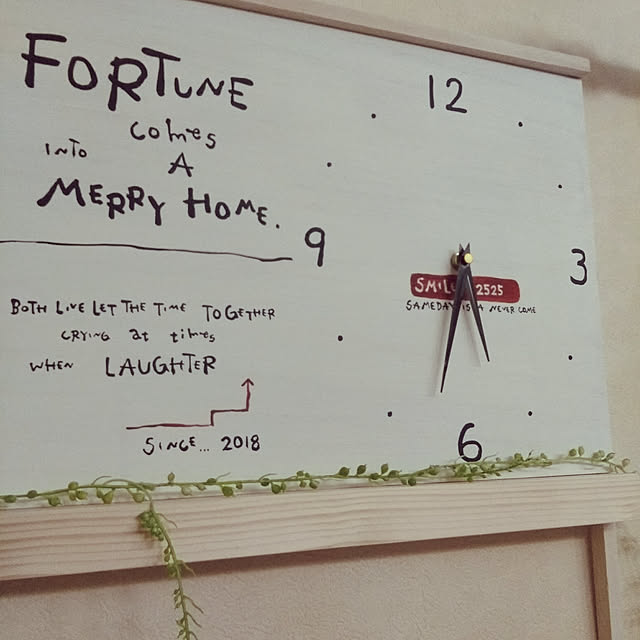 FORTUNE
comes
INTO
A
MERRY HOME.
BOTH LIVE LET THE TIME TOGETHER
CRYING at times
WHEN LAUGHTER
SINCE... 2018
12
9
3
6
SMILE 2525
SAMEDAY IS A NEVER COME